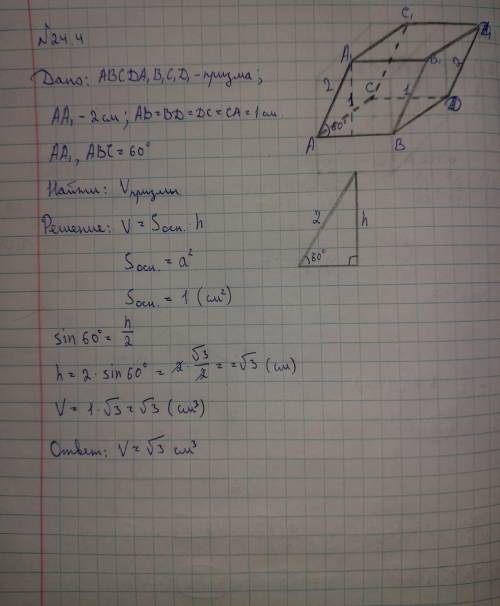 №24.4
Дано: ABCDA₁B₁C₁D₁ - призма;
AA₁ - 2 см; AB = BD = DC = CA = 1 см
AA₁, ABC = 60°
Найти: Vпризмы
Решение: V = Sосн. h
Sосн. = a²
Sосн. = 1 (см²)
sin 60° = h/2
h = 2 · sin 60° = 2 · √3/2 = = √3 (см)
V = 1 · √3 = √3 (см³)
Ответ: V = √3 см³
C₁
D₁
A₁
B₁
2
2
C
1
1
60°
D
A
B
2
h
60°